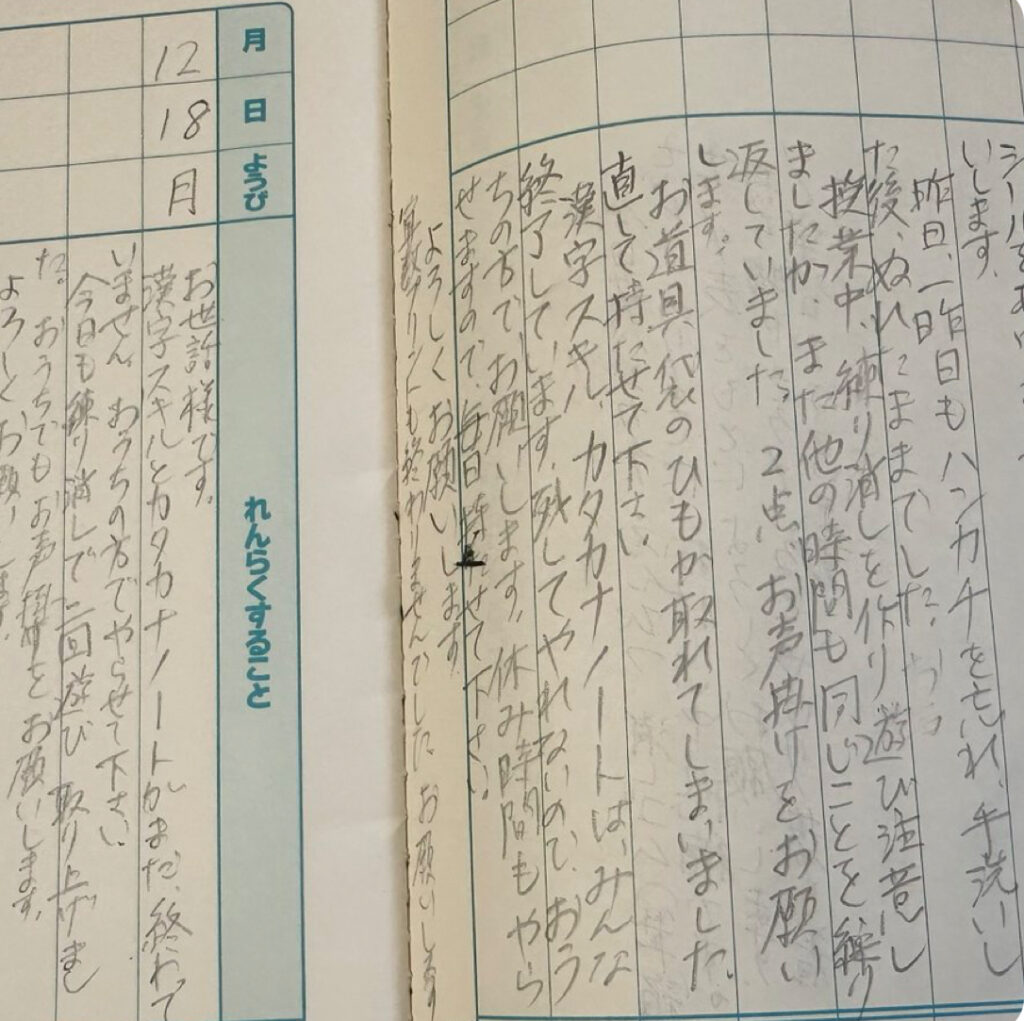 いします。
昨日、一昨日もハンカチを忘れ、手洗いし
た後、ぬれたままでした。
授業中、練り消しを作り遊び注意し
ましたが、また他の時間も同じことを繰り
返していました。2点、お声掛けをお願い
します。
お道具袋のひもが取れてしまいました。
直して持たせて下さい
漢字スキル、カタカナノートは、みんな
終了しています。残してやれないので、おう
ちの方で、お願いします。休み時間もやら
せますので、毎日持たせて下さい。
よろしくお願いします
算数プリントも終わりませんでした お願いします
月 12
日 18
ようび 月
れんらくすること
お世話様です。
漢字スキルとカタカナノートがまだ、終わって
いません おうちの方でやらせて下さい
今日も練り消しで二回遊び 取り上げまし
た。おうちでもお声掛けをお願いします。
よろしくお願いします。